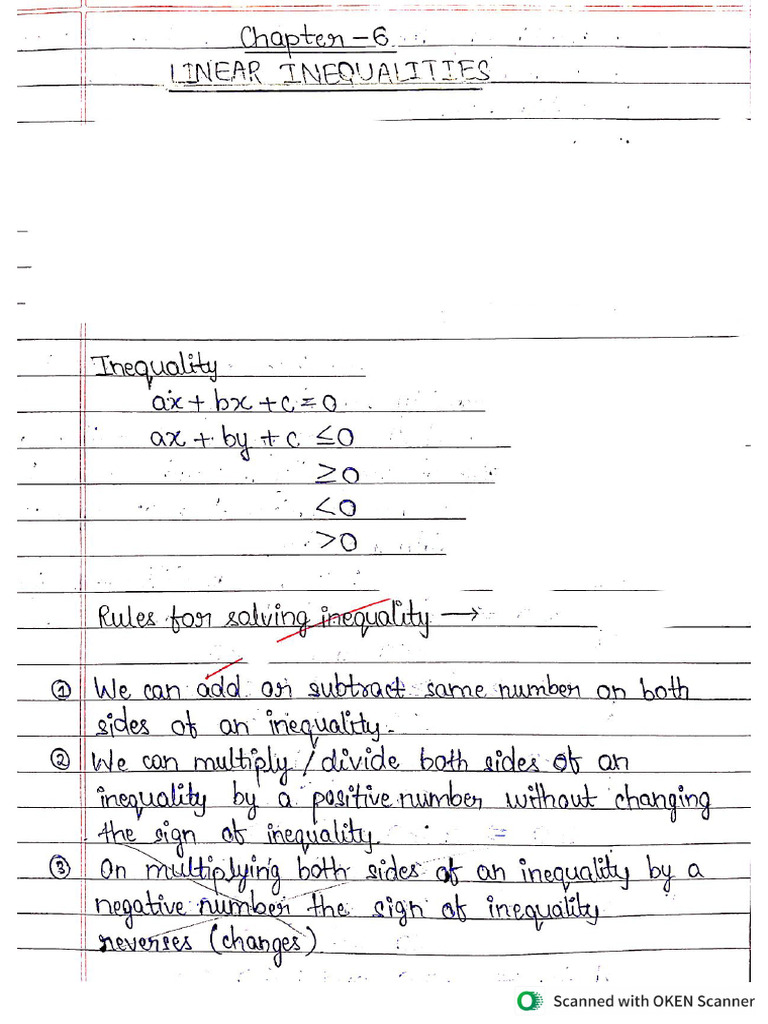 Chapter-6
LINEAR INEQUALITIES
Inequality
ax + bx + c = 0
ax + by + c ≤0
≥0
<0
>0
Rules for solving inequality →
① We can add or subtract same number on both
sides of an inequality.
② We can multiply / divide both sides of an
inequality by a positive number without changing
the sign of inequality.
③ On multiplying both sides of an inequality by a
negative number the sign of inequality
reverses (changes)
Scanned with OKEN Scanner